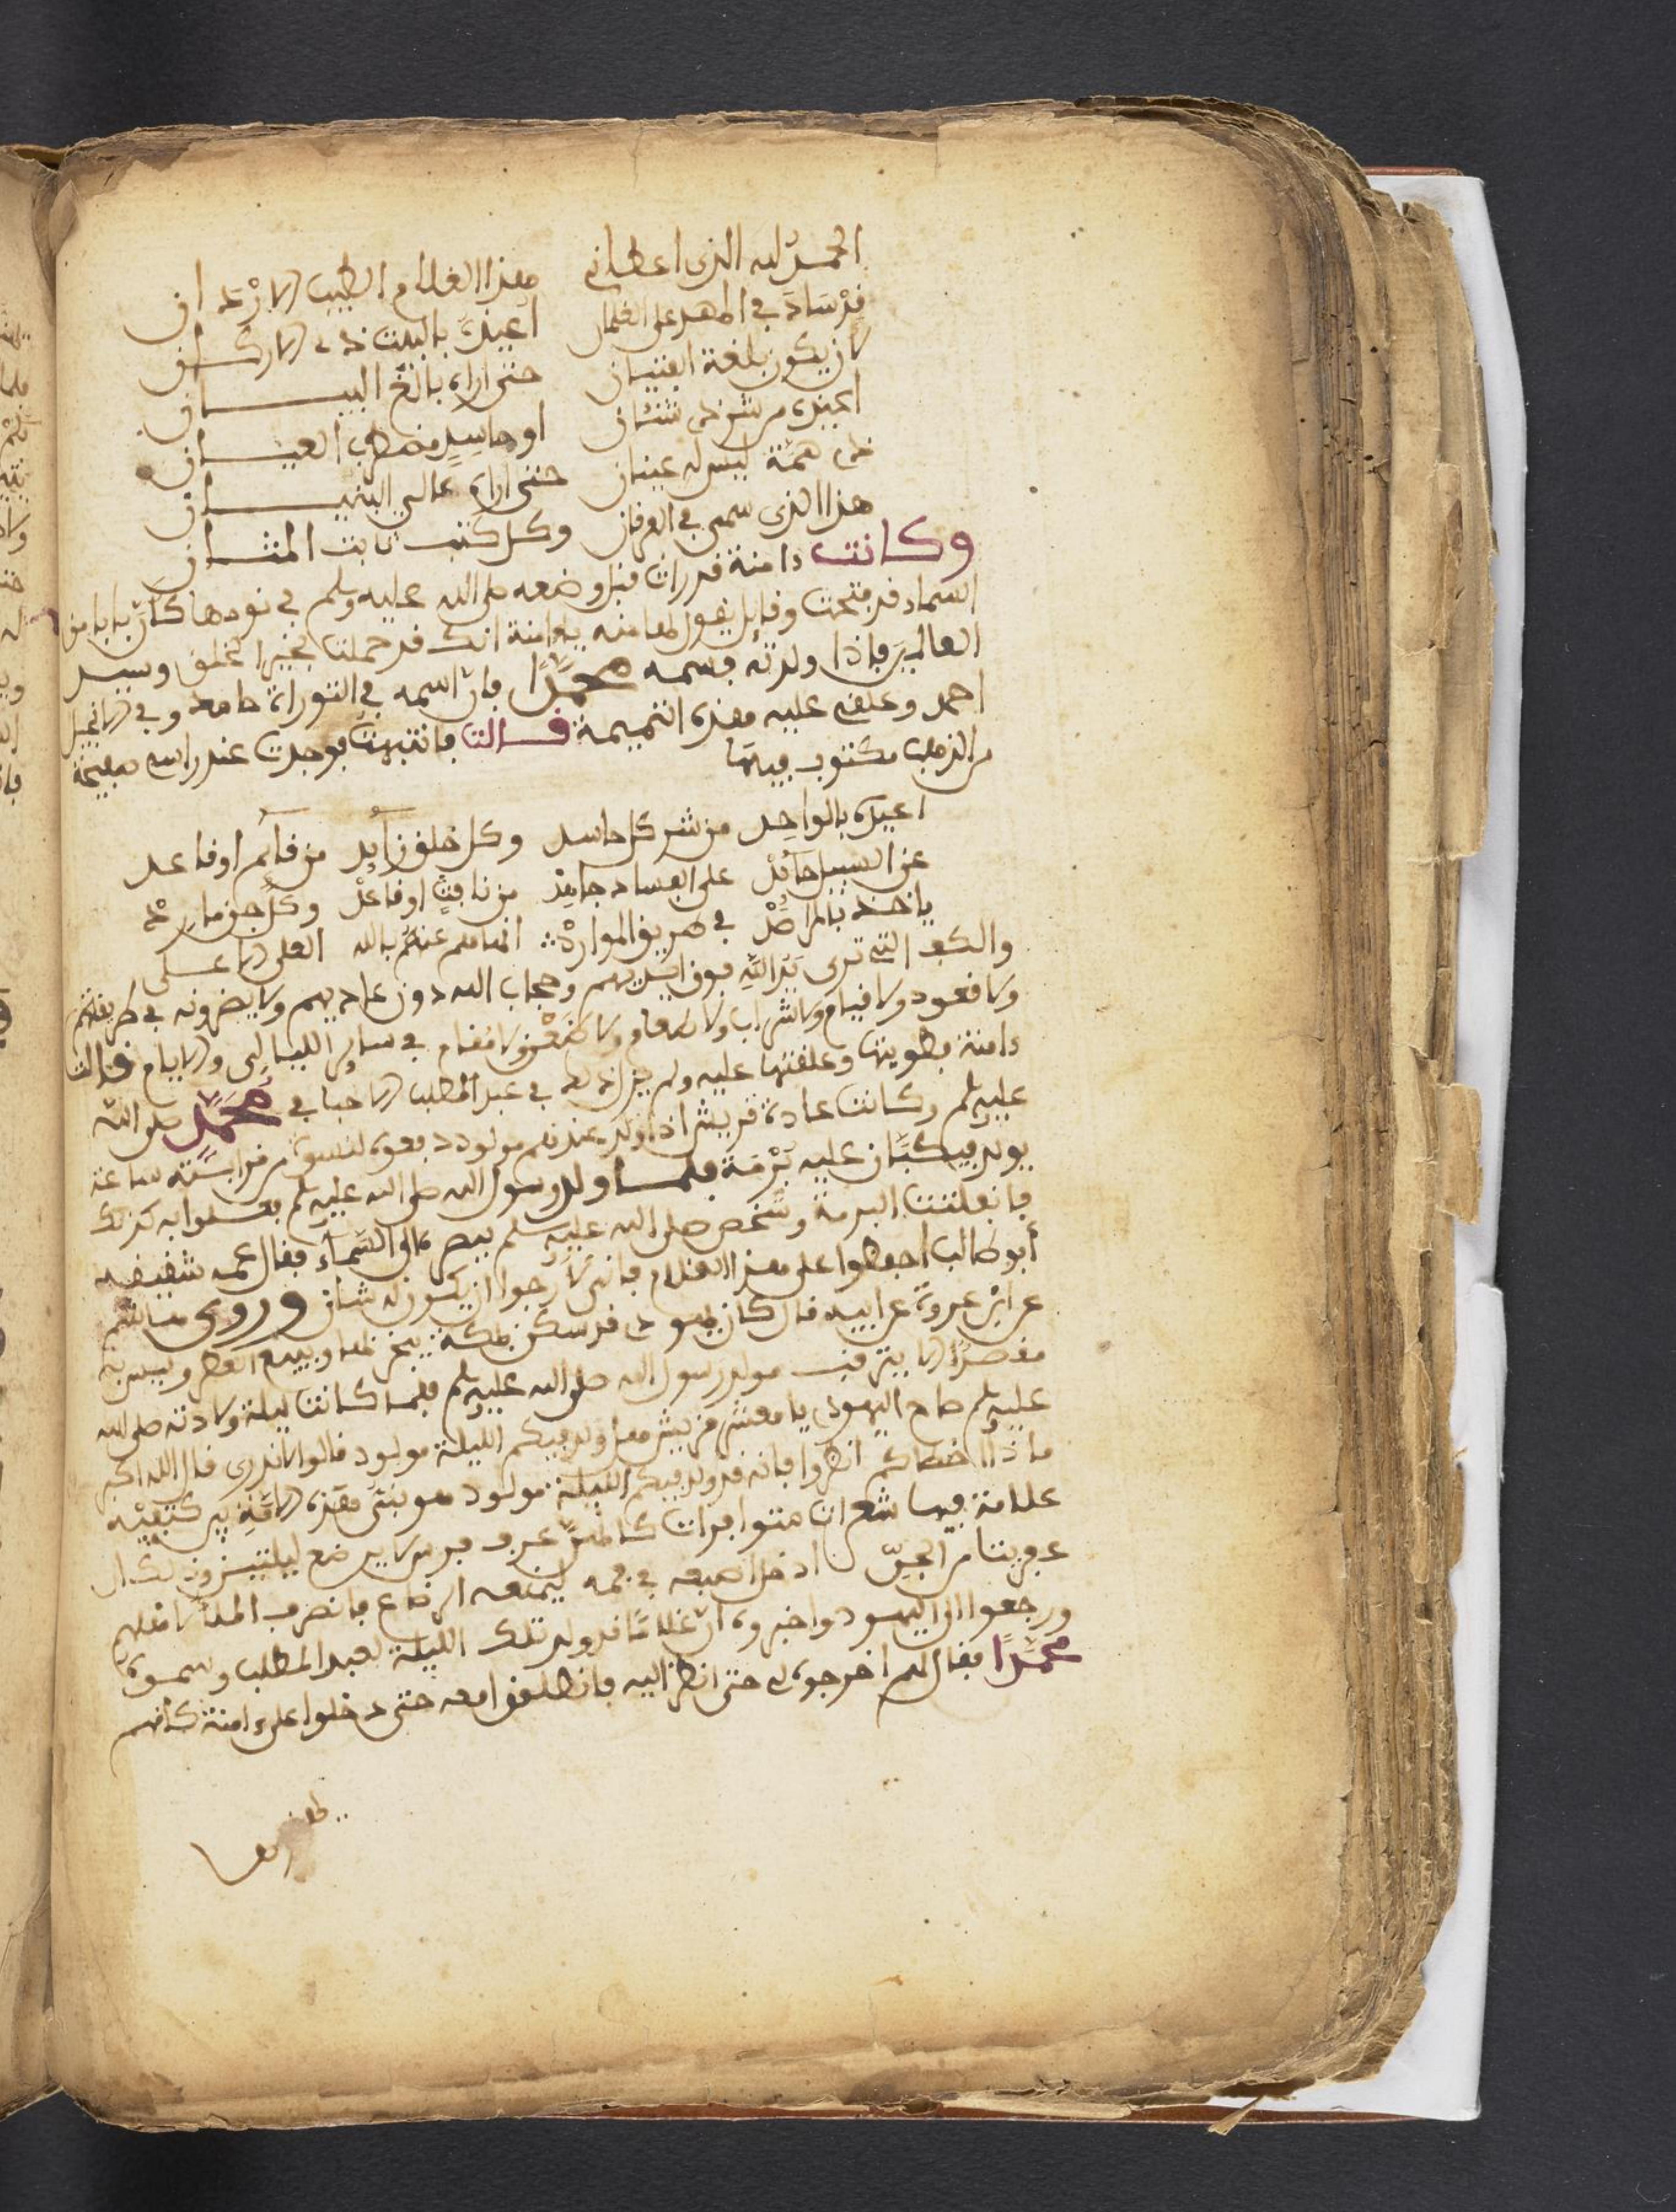 الحمد لله الذي اعطاني هذا الغلام الطيب الاردان
قد ساد في المهد على الغلمان اعيذه بالبيت ذي الاركان
كان يكون بلغة الفتيان حتى اراه بالغ البنيان
اعيذه من شر ذي شنئان او حاسد مضطرب العيان
ذي همة ليس له عينان حتى اراه عالي البنيان
هذا الذي سمى في الفرقان وكل كتب ثابت المثان
وكانت ءامنة قد رات قبل وضعه صلى الله عليه وسلم في نومها كان بابا من
السماء قد فتحت وقايل يقول لها منه يا ءامنة انك قد حملت بخير الخلق وسيد
العالمين فاذا ولدته فسمه محمدا فان اسمه في التوراة حامد وفي الانجيل
احمد وعلقي عليه هذه التميمة قالت فانتبهت فوجدت عند راسي صفيحة
من الذهب مكتوب فيها
اعيذه بالواحد من شر كل حاسد وكل خلق زايد من قائم او قاعد
عن السبيل حائد على الفساد جاهد من نافث او عاقد وكل جن مارد
ياخذ بالمراصد في طريق الموارد انهاهم عنه بالله العلي الاعلى
والكف التي ترى يد الله فوق ايديهم وحجاب الله دون عاديهم ولا يضرونه في طريقهم
ولا قعود ولا قيام ولا شراب ولا طعام ولا ولا مقام في ساير الليالي والايام قالت
ءامنة فطويتها وعلقتها عليه ولم في عبد المطلب في محمد صلى الله
عليه وسلم وكانت عادة قريش اذا ولد عندهم مولود دفعوه لنسوة من ساعة
يولد فيكبان عليه برمة فلما ولد رسول الله صلى الله عليه وسلم فعلوا به كذلك
فانفلقت البرمة وشخص صلى الله عليه وسلم ببصره الى السماء فقال عمه شقيقه
أبو طالب احفظوا على هذا الغلام فاني لارجوا ان يكون له شان وروى هشام
عن ابن عروة عن ابيه قال كان يهودي قد سكن بمكة يتجر بها ويبيع العطر وليس به
مقصدا الا يترقب مولد رسول الله صلى الله عليه وسلم فلما كانت ليلة ولادته صلى الله
عليه وسلم صاح اليهودي يا معشر قريش هل ولد فيكم الليلة مولود قالوا لا ندري قال الله اكبر
ماذا اخطاكم انظروا فانه قد ولد فيكم الليلة مولود هو نبي هذه الامة بين كتفيه
علامة فيها شعرات متواترات كانهن عرف فرس لا يرضع ليلتين وذلك ان
عفريتا من الجن ادخل اصبعه في فمه ليمنعه الرضاع فانصرف الملأ لاهلهم
ورجعوا الى اليهود واخبروه ان غلاما قد ولد تلك الليلة لعبد المطلب وسموه
محمدا فقال لهم اخرجوه لي حتى انظر اليه فانطلقوا معه حتى دخلوا على ءامنة كانهم